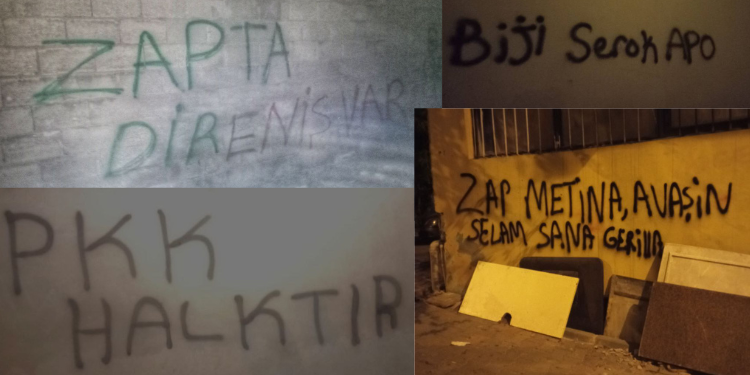 ZAPTA
DİRENİŞ VAR
Biji Serok APO
ZAP METİNA, AVAŞİN
SELAM SANA GERİLLA
PKK
HALKTIR